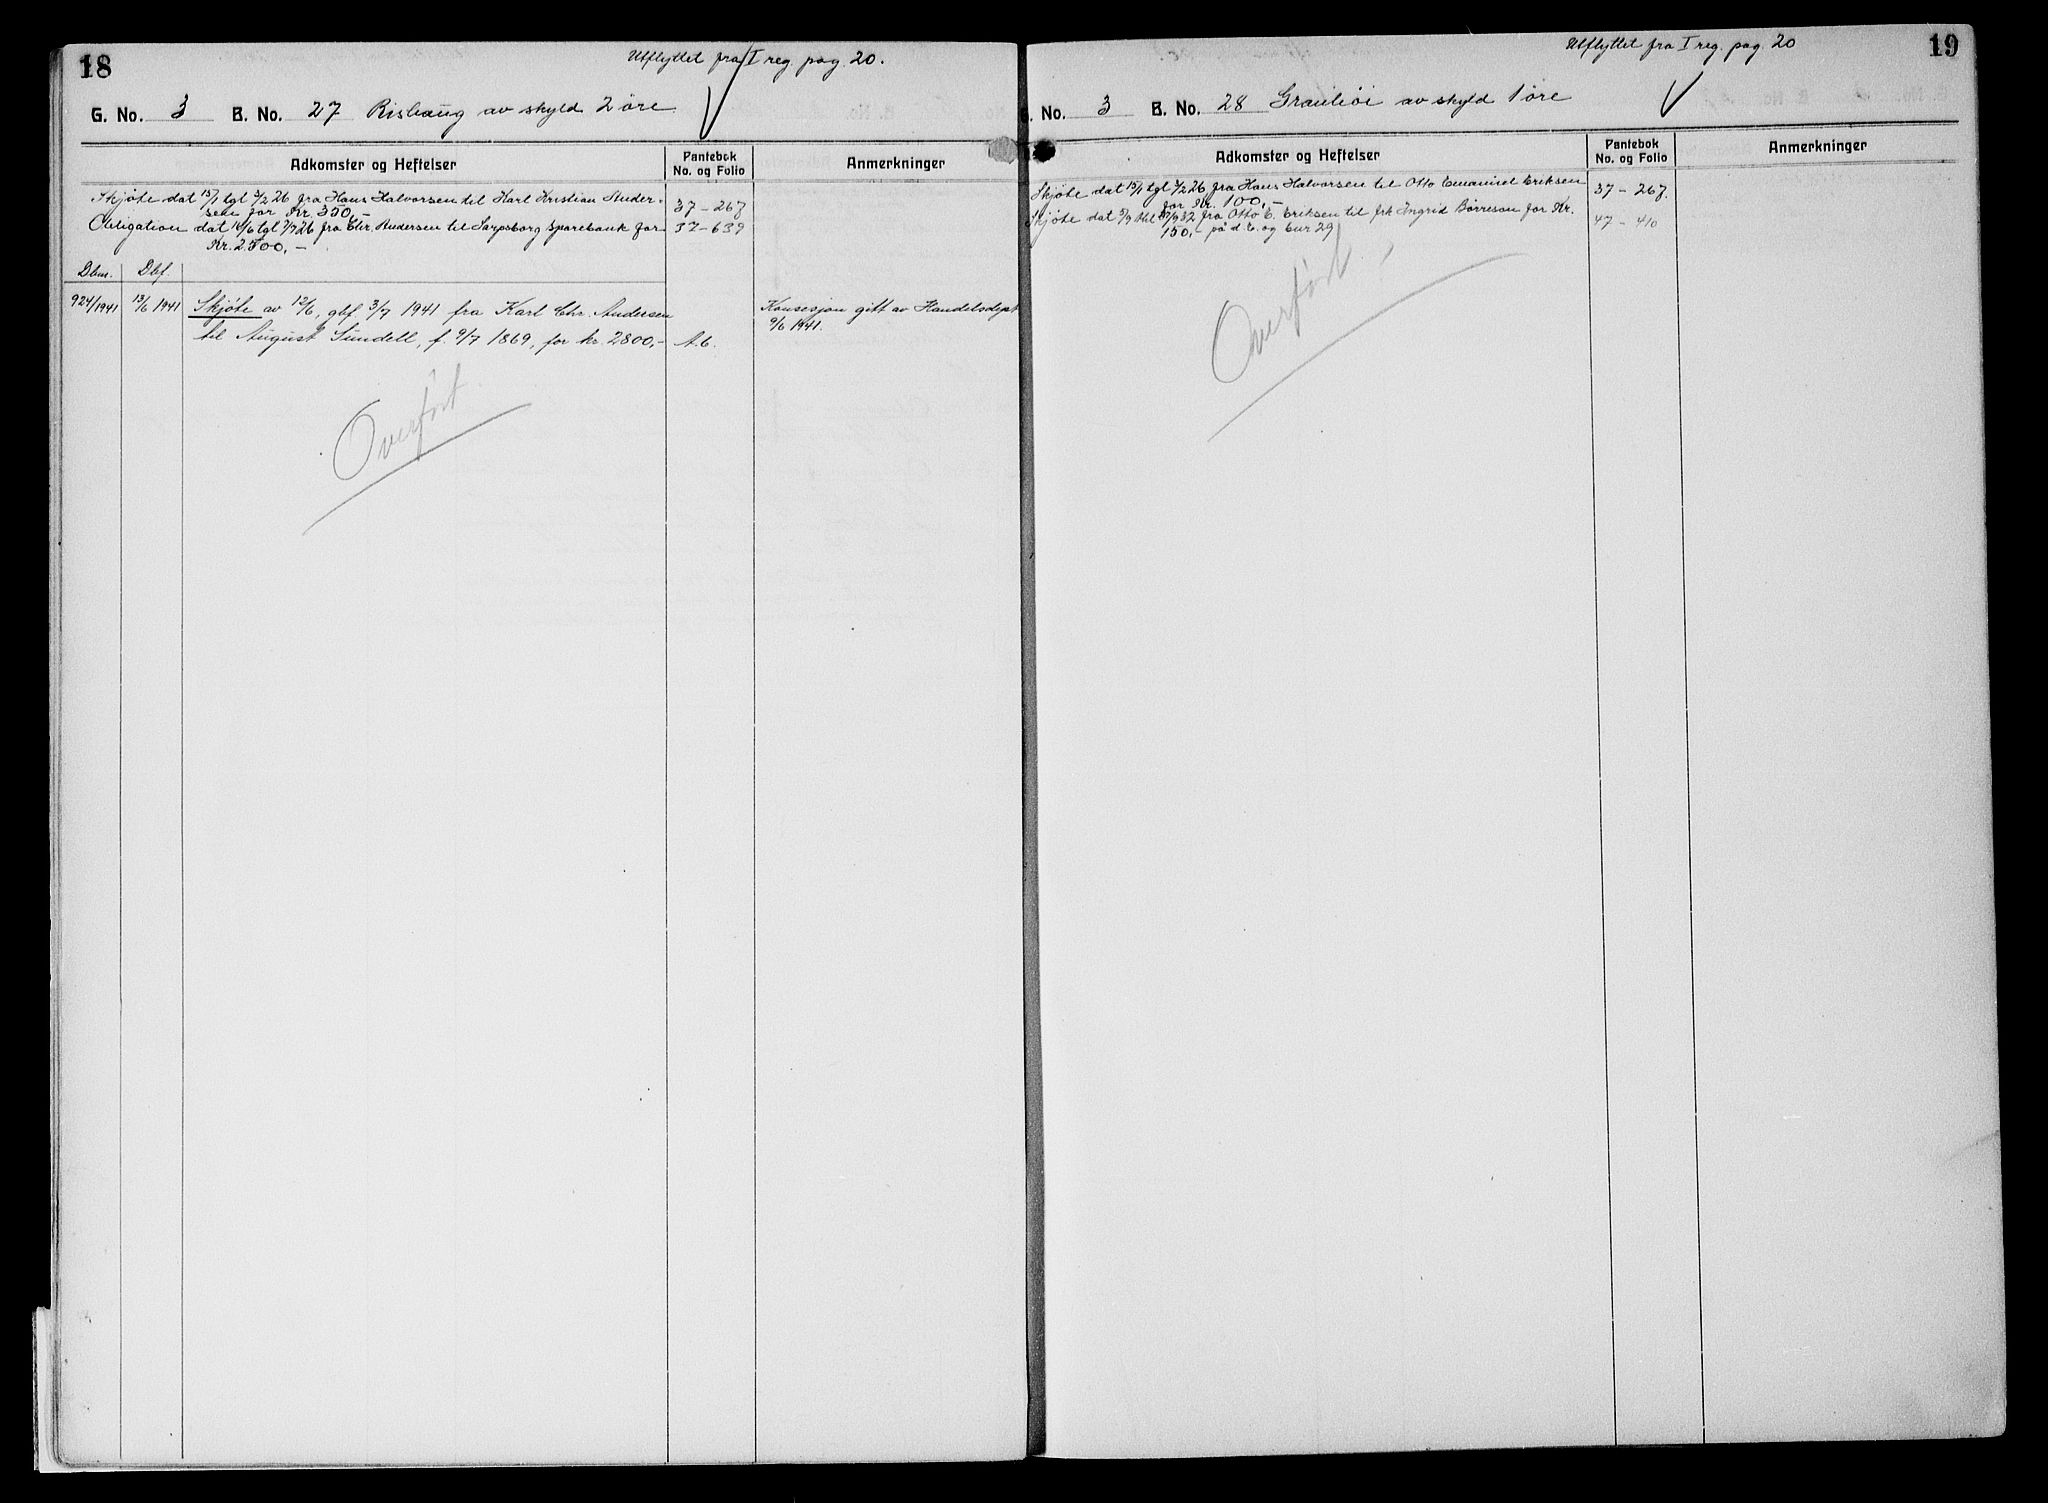 18
Utflyttet fra I reg. pag. 20.
G. No. 3 B. No. 27 Rishaug av skyld 2 øre
Adkomster og Heftelser
Pantebok
No. og Folio
Anmerkninger
Skjøte dat 15/1 tgl 3/2 26 fra Hans Halvorsen til Karl Kristian Ander-
sen for Kr. 350,- 37-267
Obligation dat 16/6 tgl 2/9 26 fra Chr. Andersen til Sarpsborg Sparebank for 37-639
Kr. 2500,-
Dbnr. Dbf.
924/1941 13/6 1941 Skjøte av 12/6, gbf. 3/7 1941 fra Karl Chr. Andersen
til August Sundell, f. 9/7 1869, for kr. 2800,- A.6.
Konsesjon gitt av Handelsdept
9/6 1941.
Overført
19
Utflyttet fra I reg. pag. 20
G. No. 3 B. No. 28 Granliøi av skyld 1 øre
Adkomster og Heftelser
Pantebok
No. og Folio
Anmerkninger
Skjøte dat 15/1 tgl 3/2 26 fra Hans Halvorsen til Otto Emanuel Eriksen 37-267.
for Kr. 100,-
Skjøte dat 5/9 32 fra Otto E. Eriksen til frk Ingrid Børreson for Kr. 47-410
150,- på d. E. og Bnr 29
Overført